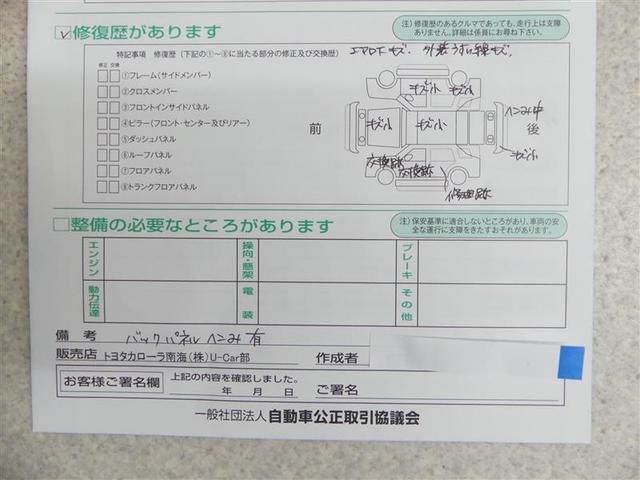 ✓ 修復歴があります
注）修復歴のあるクルマであっても、走行上は支障ありません。詳細は係員にお尋ね下さい。
特記事項 修復歴（下記の①〜⑧に当たる部分の修正及び交換歴）
エアロ下キズ. 外装うすい線キズ.
修正 交換
①フレーム（サイドメンバー）
②クロスメンバー
③フロントインサイドパネル
④ピラー（フロント・センター及びリアー）
⑤ダッシュパネル
⑥ルーフパネル
⑦フロアパネル
⑧トランクフロアパネル
前
後
キズ小 キズ小
ヘコミ中
キズ小 キズ小
キズ小
交換跡
交換跡
修理跡
整備の必要なところがあります
注）保安基準に適合しないところがあり、車両の安全な運行に支障をきたすおそれがあります。
エンジン
操向・懸架
ブレーキ
動力伝達
電装
その他
備考 バックパネル ヘコミ有
販売店 トヨタカローラ南海（株）U-Car部 作成者
お客様ご署名欄
上記の内容を確認しました。
年 月 日
ご署名
一般社団法人 自動車公正取引協議会